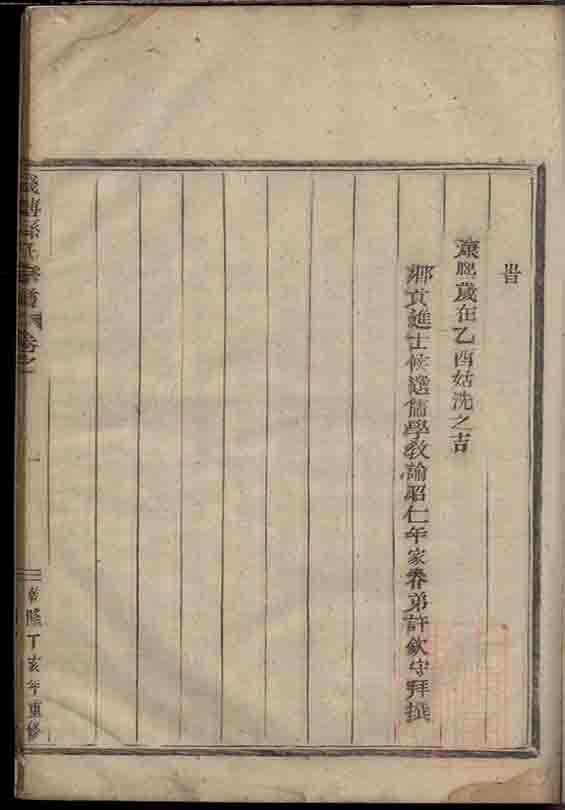 旹
康熙歲在乙酉姑洗之吉
鄉貢進士候選儒學教諭昭仁年家眷弟許欽守拜撰
孫氏宗譜
卷之
一
乾隆丁亥年重修